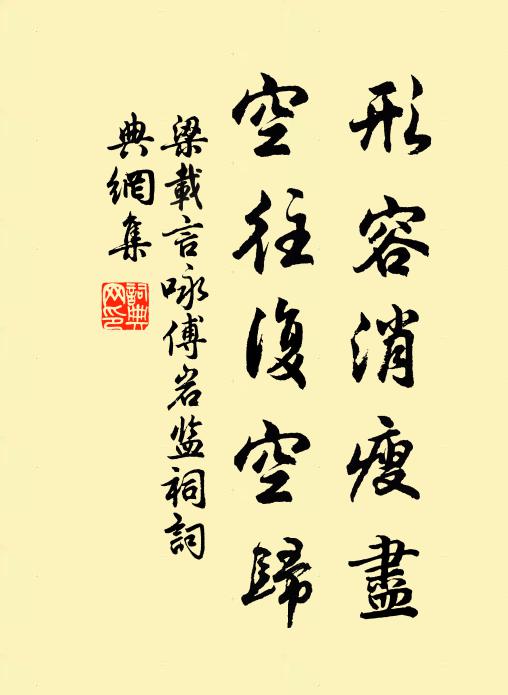 形容消瘦盡
空往復空歸
梁載言咏傅岩监祠詞
典網集
詞典
网印